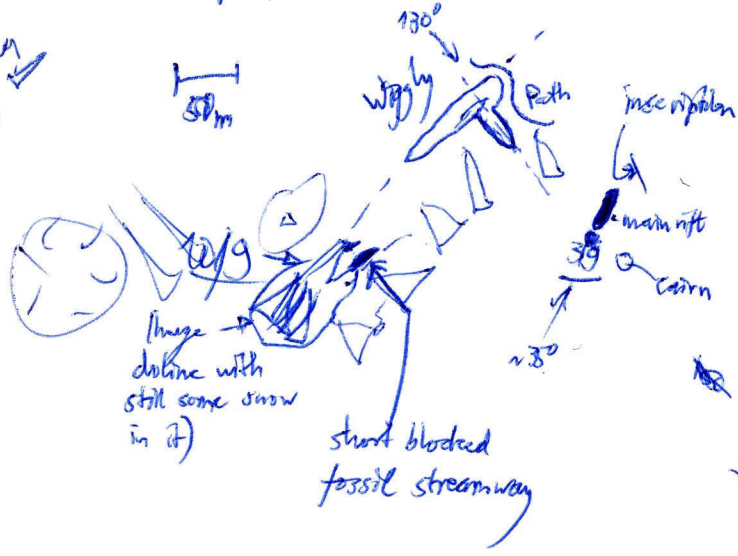 130°
50m
wiggly
path
inscription
main rift
cairn
~35°
(huge
doline with
still some snow
in it)
short blocked
fossil streamway